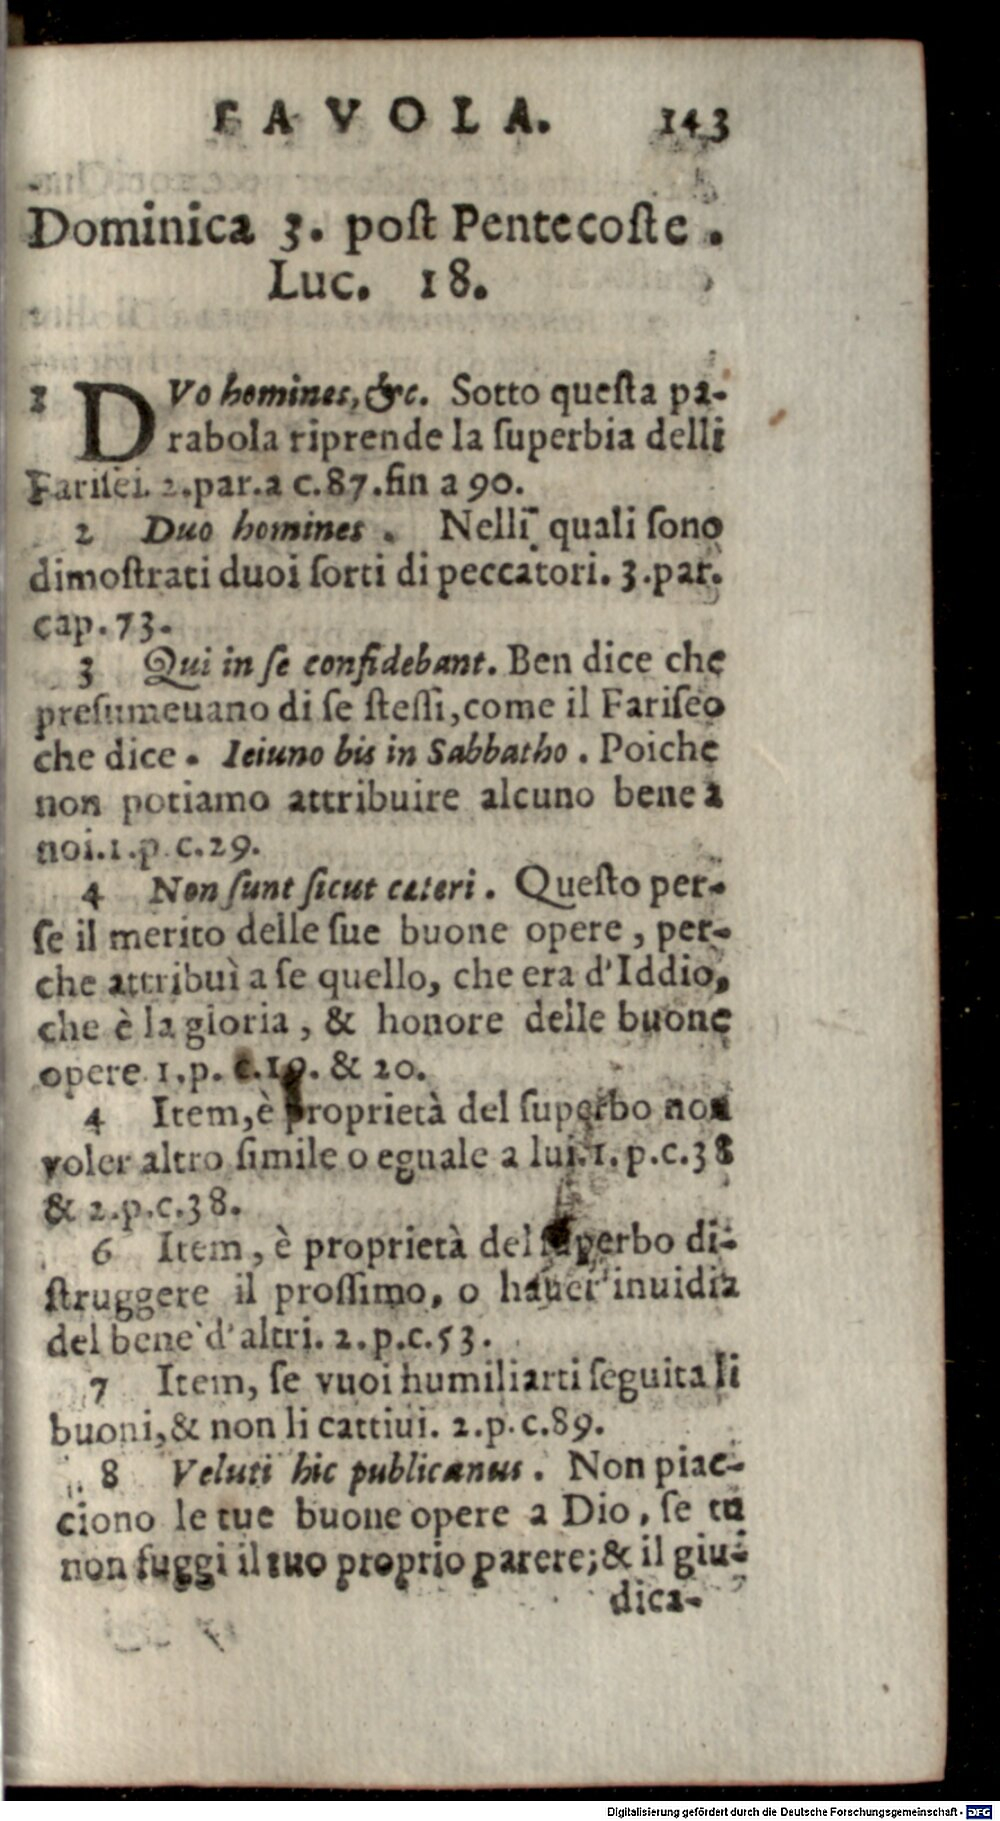 FAVOLA. 143
Dominica 3. poſt Pentecoſte.
Luc. 18.
1 DVo homines, &c. Sotto queſta pa-
rabola riprende la ſuperbia delli
Fariſei. 2.par.a c.87.fin a 90.
2 Duo homines. Nelli quali ſono
dimoſtrati duoi ſorti di peccatori. 3.par.
cap.73.
3 Qui in ſe confidebant. Ben dice che
preſumeuano di ſe ſteſſi, come il Fariſeo
che dice. Ieiuno bis in Sabbatho. Poiche
non potiamo attribuire alcuno bene a
noi.1.p c.29.
4 Non ſunt ſicut cæteri. Queſto per-
ſe il merito delle ſue buone opere, per-
che attribuì a ſe quello, che era d'Iddio,
che è la gloria, & honore delle buone
opere 1.p. c.19. & 20.
4 Item, è proprietà del ſuperbo non
voler altro ſimile o eguale a lui.1.p.c.38
& 2.p.c.38.
6 Item, è proprietà del ſuperbo di-
ſtruggere il proſſimo, o hauer inuidia
del bene d'altri. 2.p.c.53.
7 Item, ſe vuoi humiliarti ſeguita li
buoni, & non li cattiui. 2.p.c.89.
8 Veluti hic publicanus. Non piac-
ciono le tue buone opere a Dio, ſe tu
non fuggi il tuo proprio parere; & il giu-
dica-
Digitalisierung gefördert durch die Deutsche Forschungsgemeinschaft - DFG